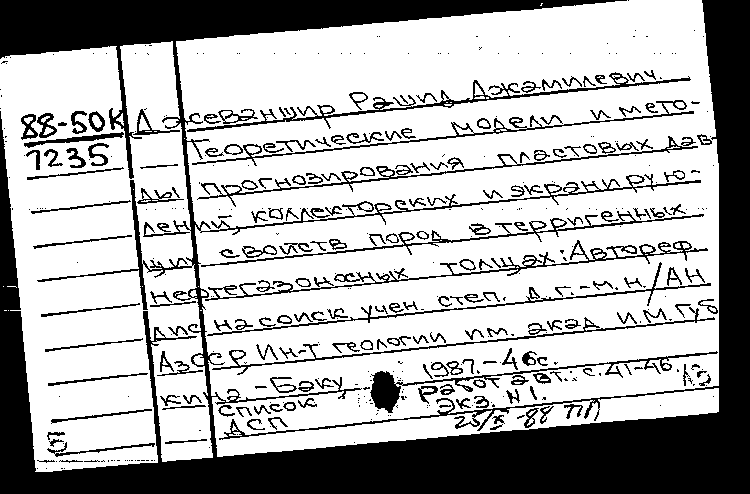 88-50К Джеваншир Рашид Джамилевич.
7235 Теоретические модели и мето-
ды прогнозирования пластовых дав-
лений, коллекторских и экранирую-
щих свойств пород в терригенных
нефтегазоносных толщах: Автореф.
дис. на соиск. учен. степ. д.г.-м.н./АН
АзССР, Ин-т геологии им. акад. И.М. Губ
кина - Баку, 1987. - 46с.
Список работ авт.: с. 41-46.
ДСП Экз. N 1.
25/X -88
Б